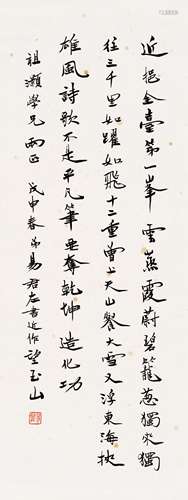 近挹全臺第一峯雲蒸霞蔚碧籠葱獨來獨
往三千里如躍如飛十二重曾上天山餐大雪又浮東海挾
雄風詩歌不是平凡筆要奪乾坤造化功
祖灝學兄兩正 戊申春弟易君左書近作望玉山